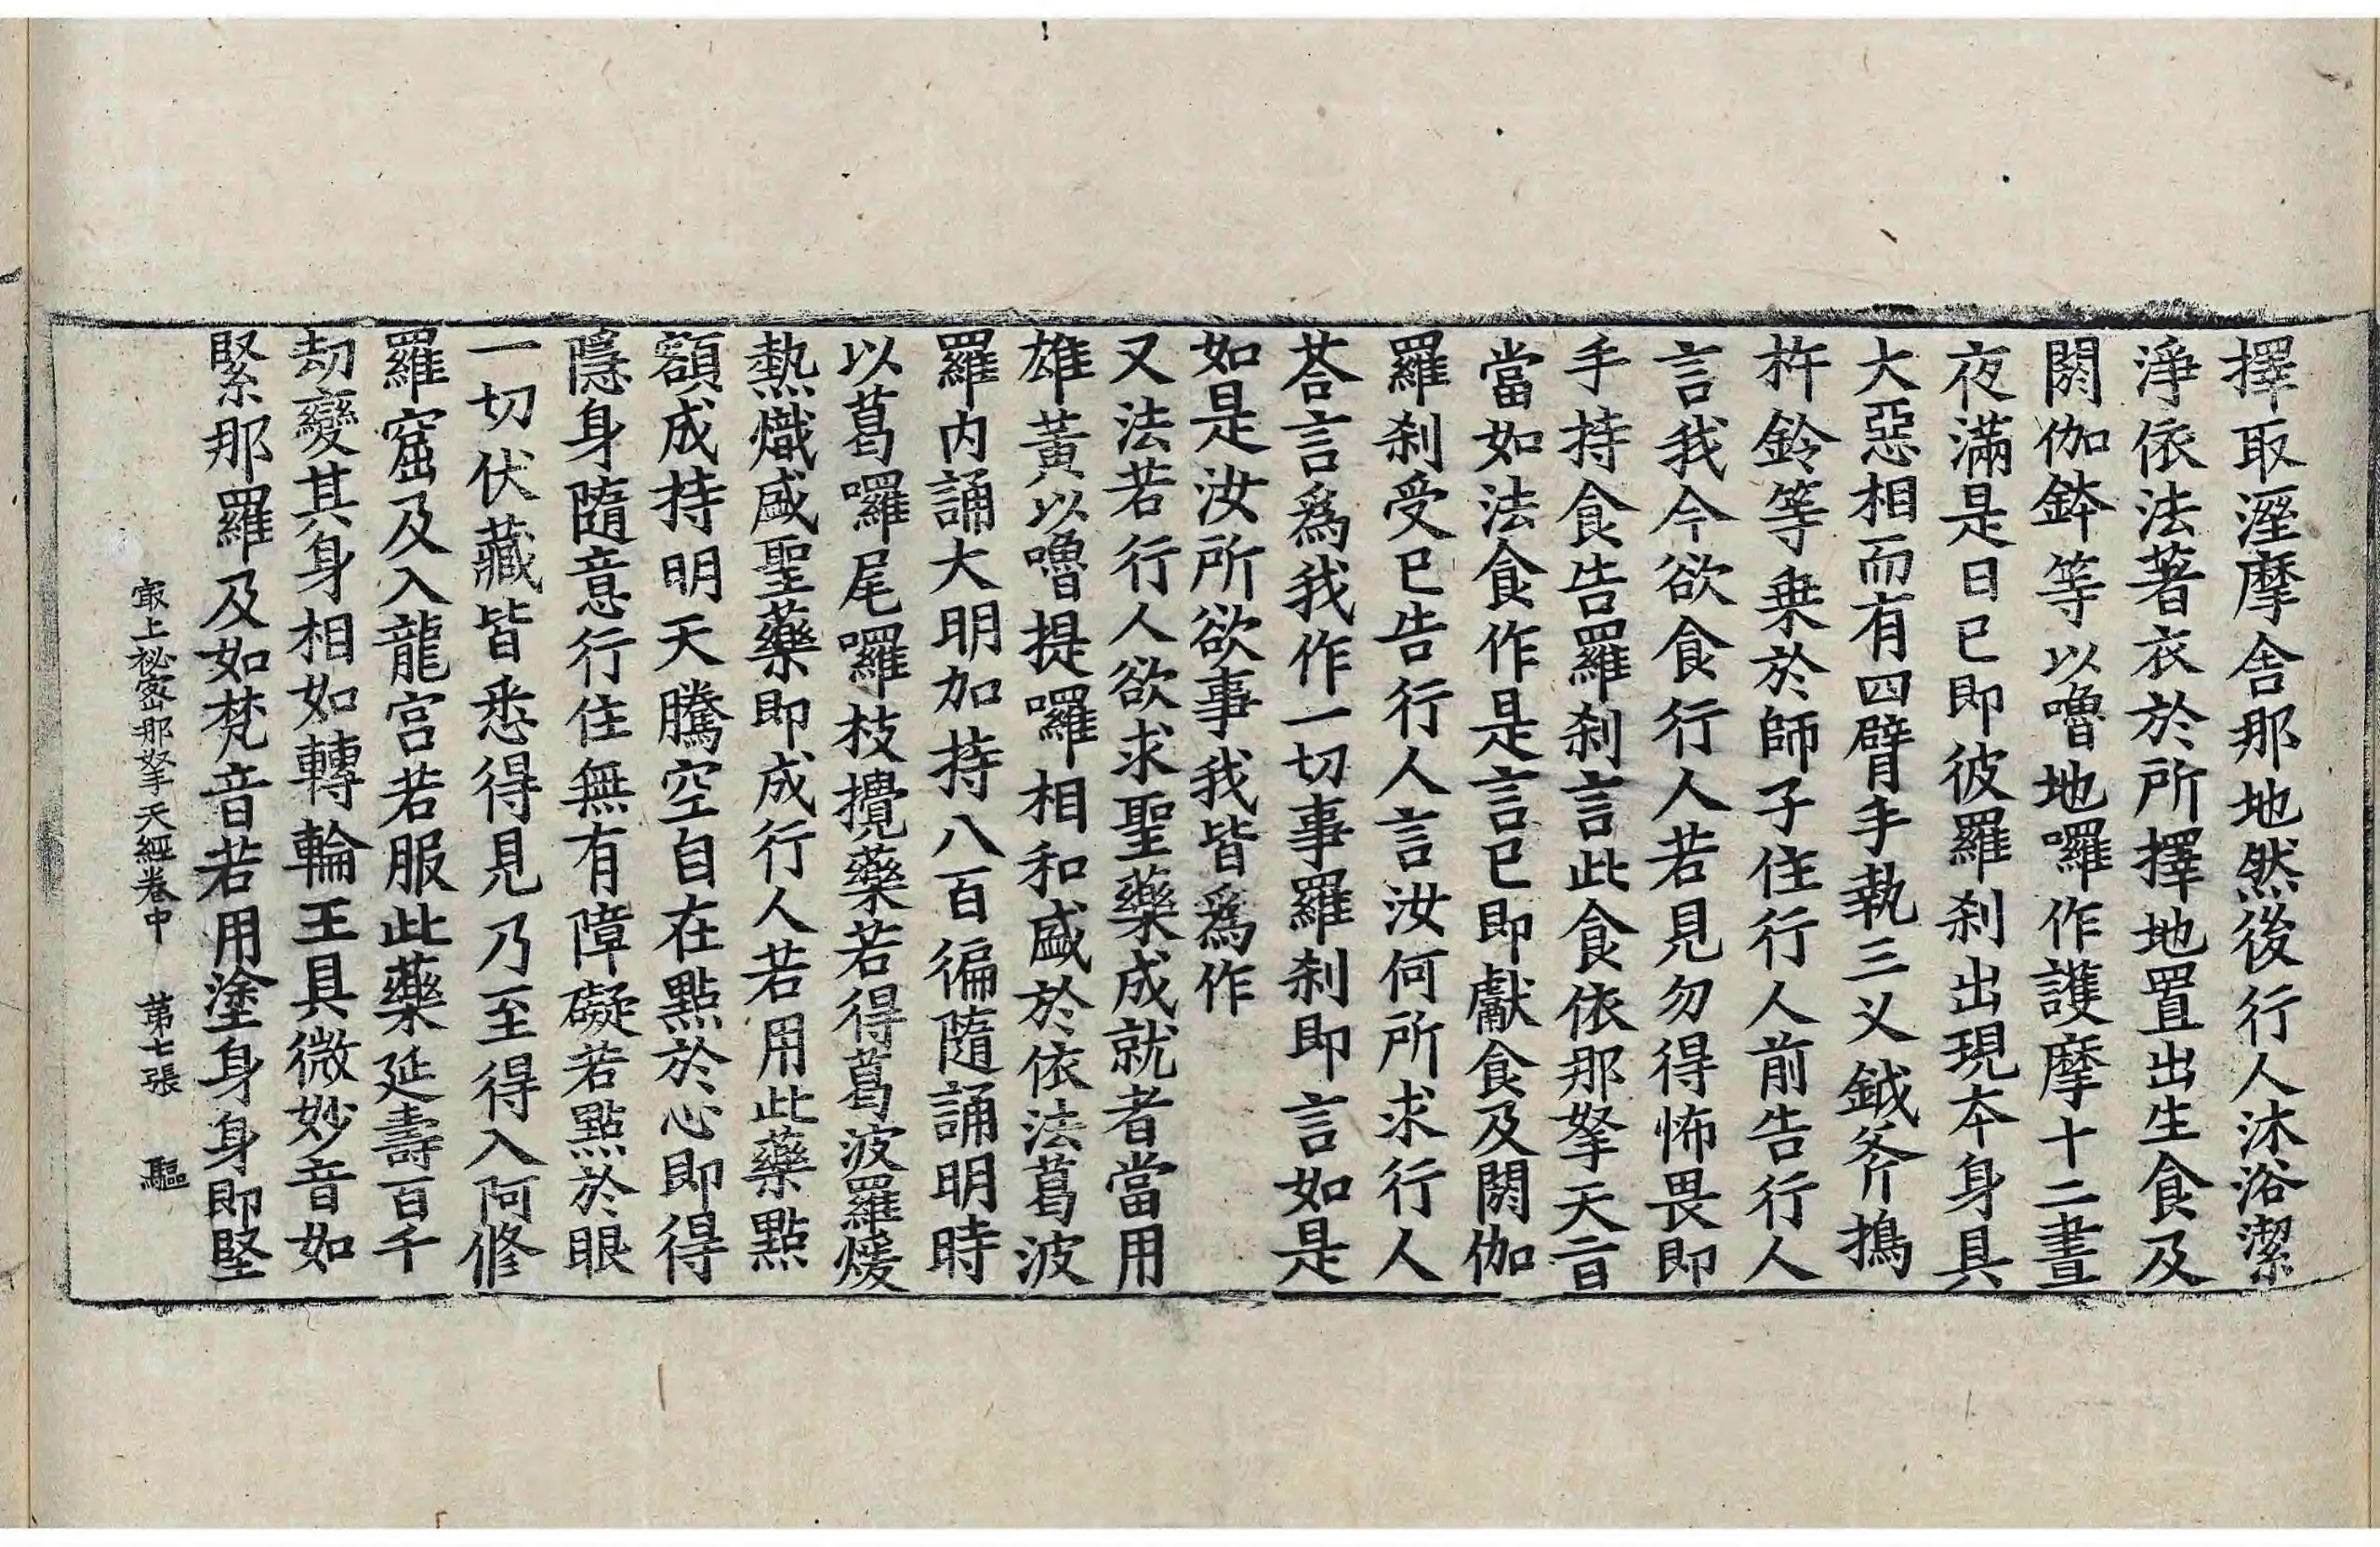 擇取溼摩舎那地然後行人沐浴潔
淨依法著衣於所擇地置出生食及
閼伽鉢等以嚕地囉作護摩十二晝
夜滿是日已即彼羅刹出現本身具
大惡相而有四臂手執三叉鉞斧擣
杵鈴等乗於師子住行人前告行人
言我今欲食行人若見勿得怖畏即
手持食告羅刹言此食依那拏天㫖
當如法食作是言已即獻食及閼伽
羅刹受已告行人言汝何所求行人
荅言爲我作一切事羅刹即言如是
如是汝所欲事我皆爲作
又法若行人欲求聖藥成就者當用
雄黃以嚕提囉相和盛於依法葛波
羅内誦大明加持八百徧隨誦明時
以葛囉尾囉枝攪藥若得葛波羅煖
熱熾盛聖藥即成行人若用此藥點
額成持明天騰空自在點於心即得
隱身隨意行住無有障礙若點於眼
一切伏藏皆悉得見乃至得入阿修
羅窟及入龍宮若服此藥延壽百千
劫變其身相如轉輪王具微妙音如
緊那羅及如梵音若用塗身身即堅
㝡上祕密那拏天經卷中　第七張　驅